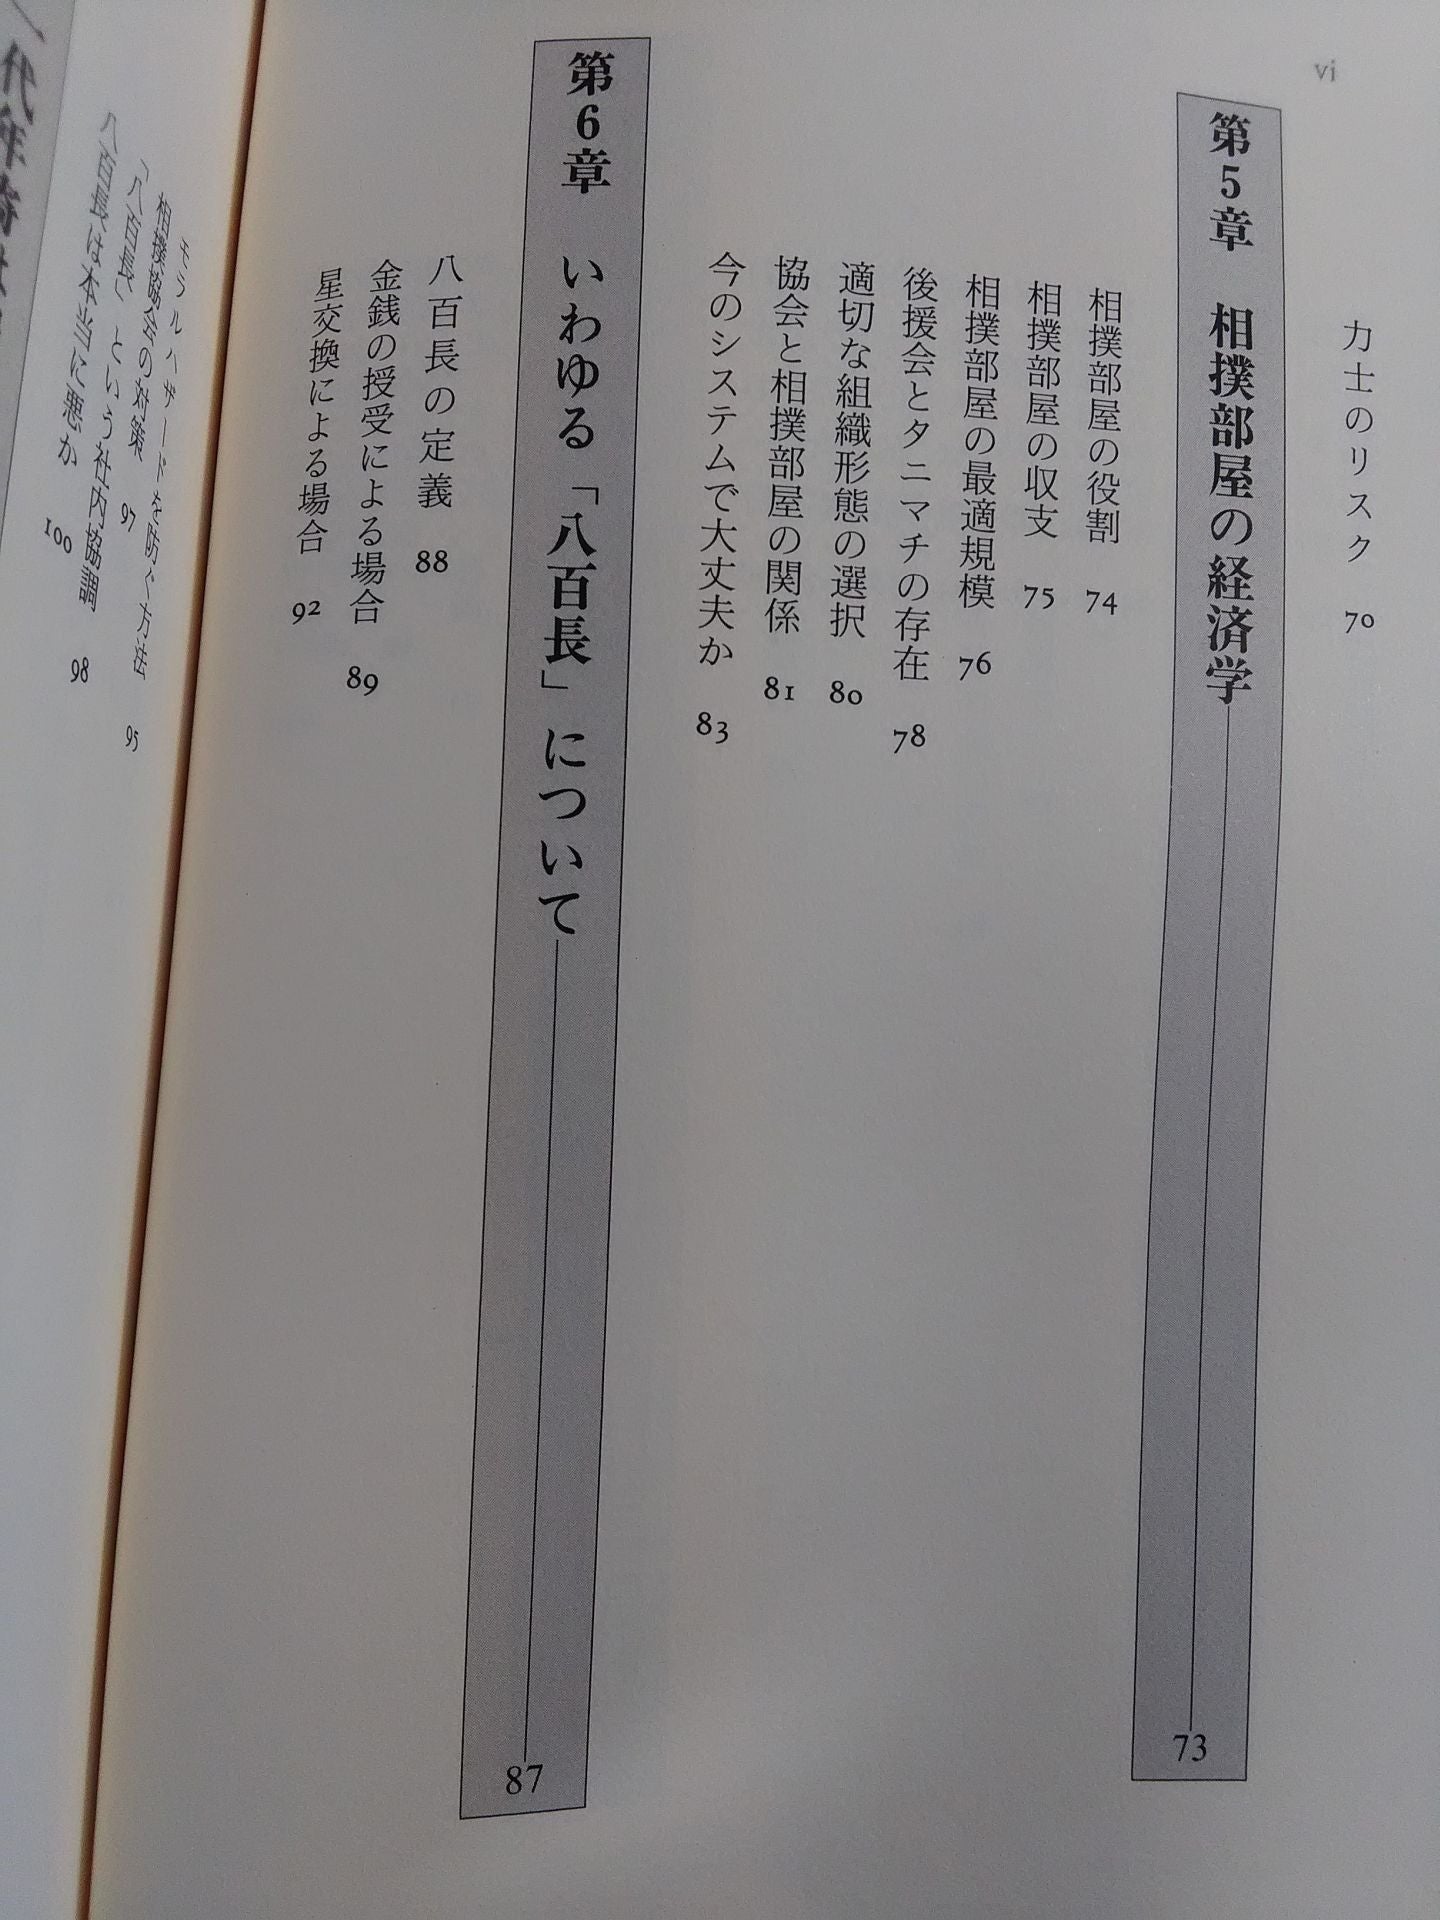 vi
力士のリスク 70
第5章 相撲部屋の経済学 73
相撲部屋の役割 74
相撲部屋の収支 75
相撲部屋の最適規模 76
後援会とタニマチの存在 78
適切な組織形態の選択 80
協会と相撲部屋の関係 81
今のシステムで大丈夫か 83
第6章 いわゆる「八百長」について 87
八百長の定義 88
金銭の授受による場合 89
星交換による場合 92
モラルハザードを防ぐ方法 95
相撲協会の対策 97
「八百長」という社内協調 98
八百長は本当に悪か 100
代年寄は